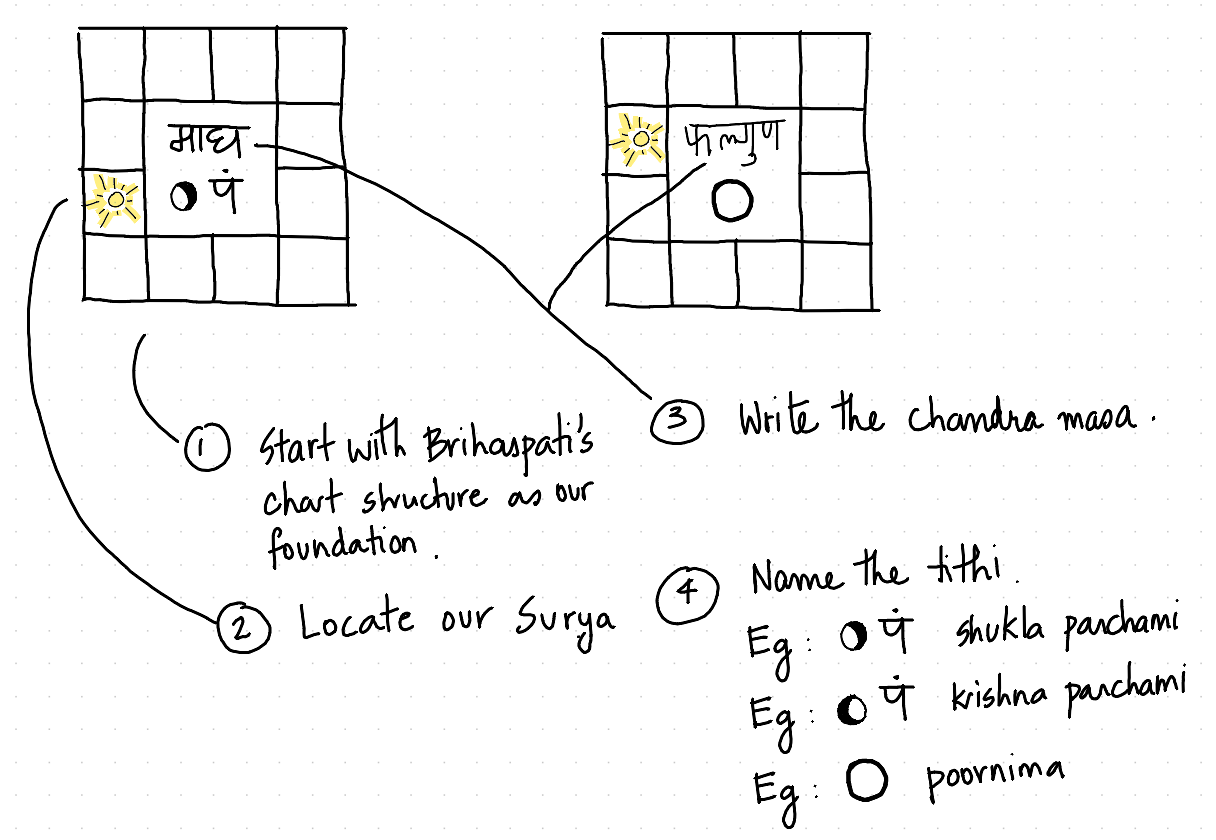 माघ
पं
फल्गुण
1 Start with Brihaspati's
chart structure as our
foundation.
2 Locate our Surya
3 Write the chandra masa.
4 Name the tithi.
Eg: पं shukla panchami
Eg: पं krishna panchami
Eg: poornima